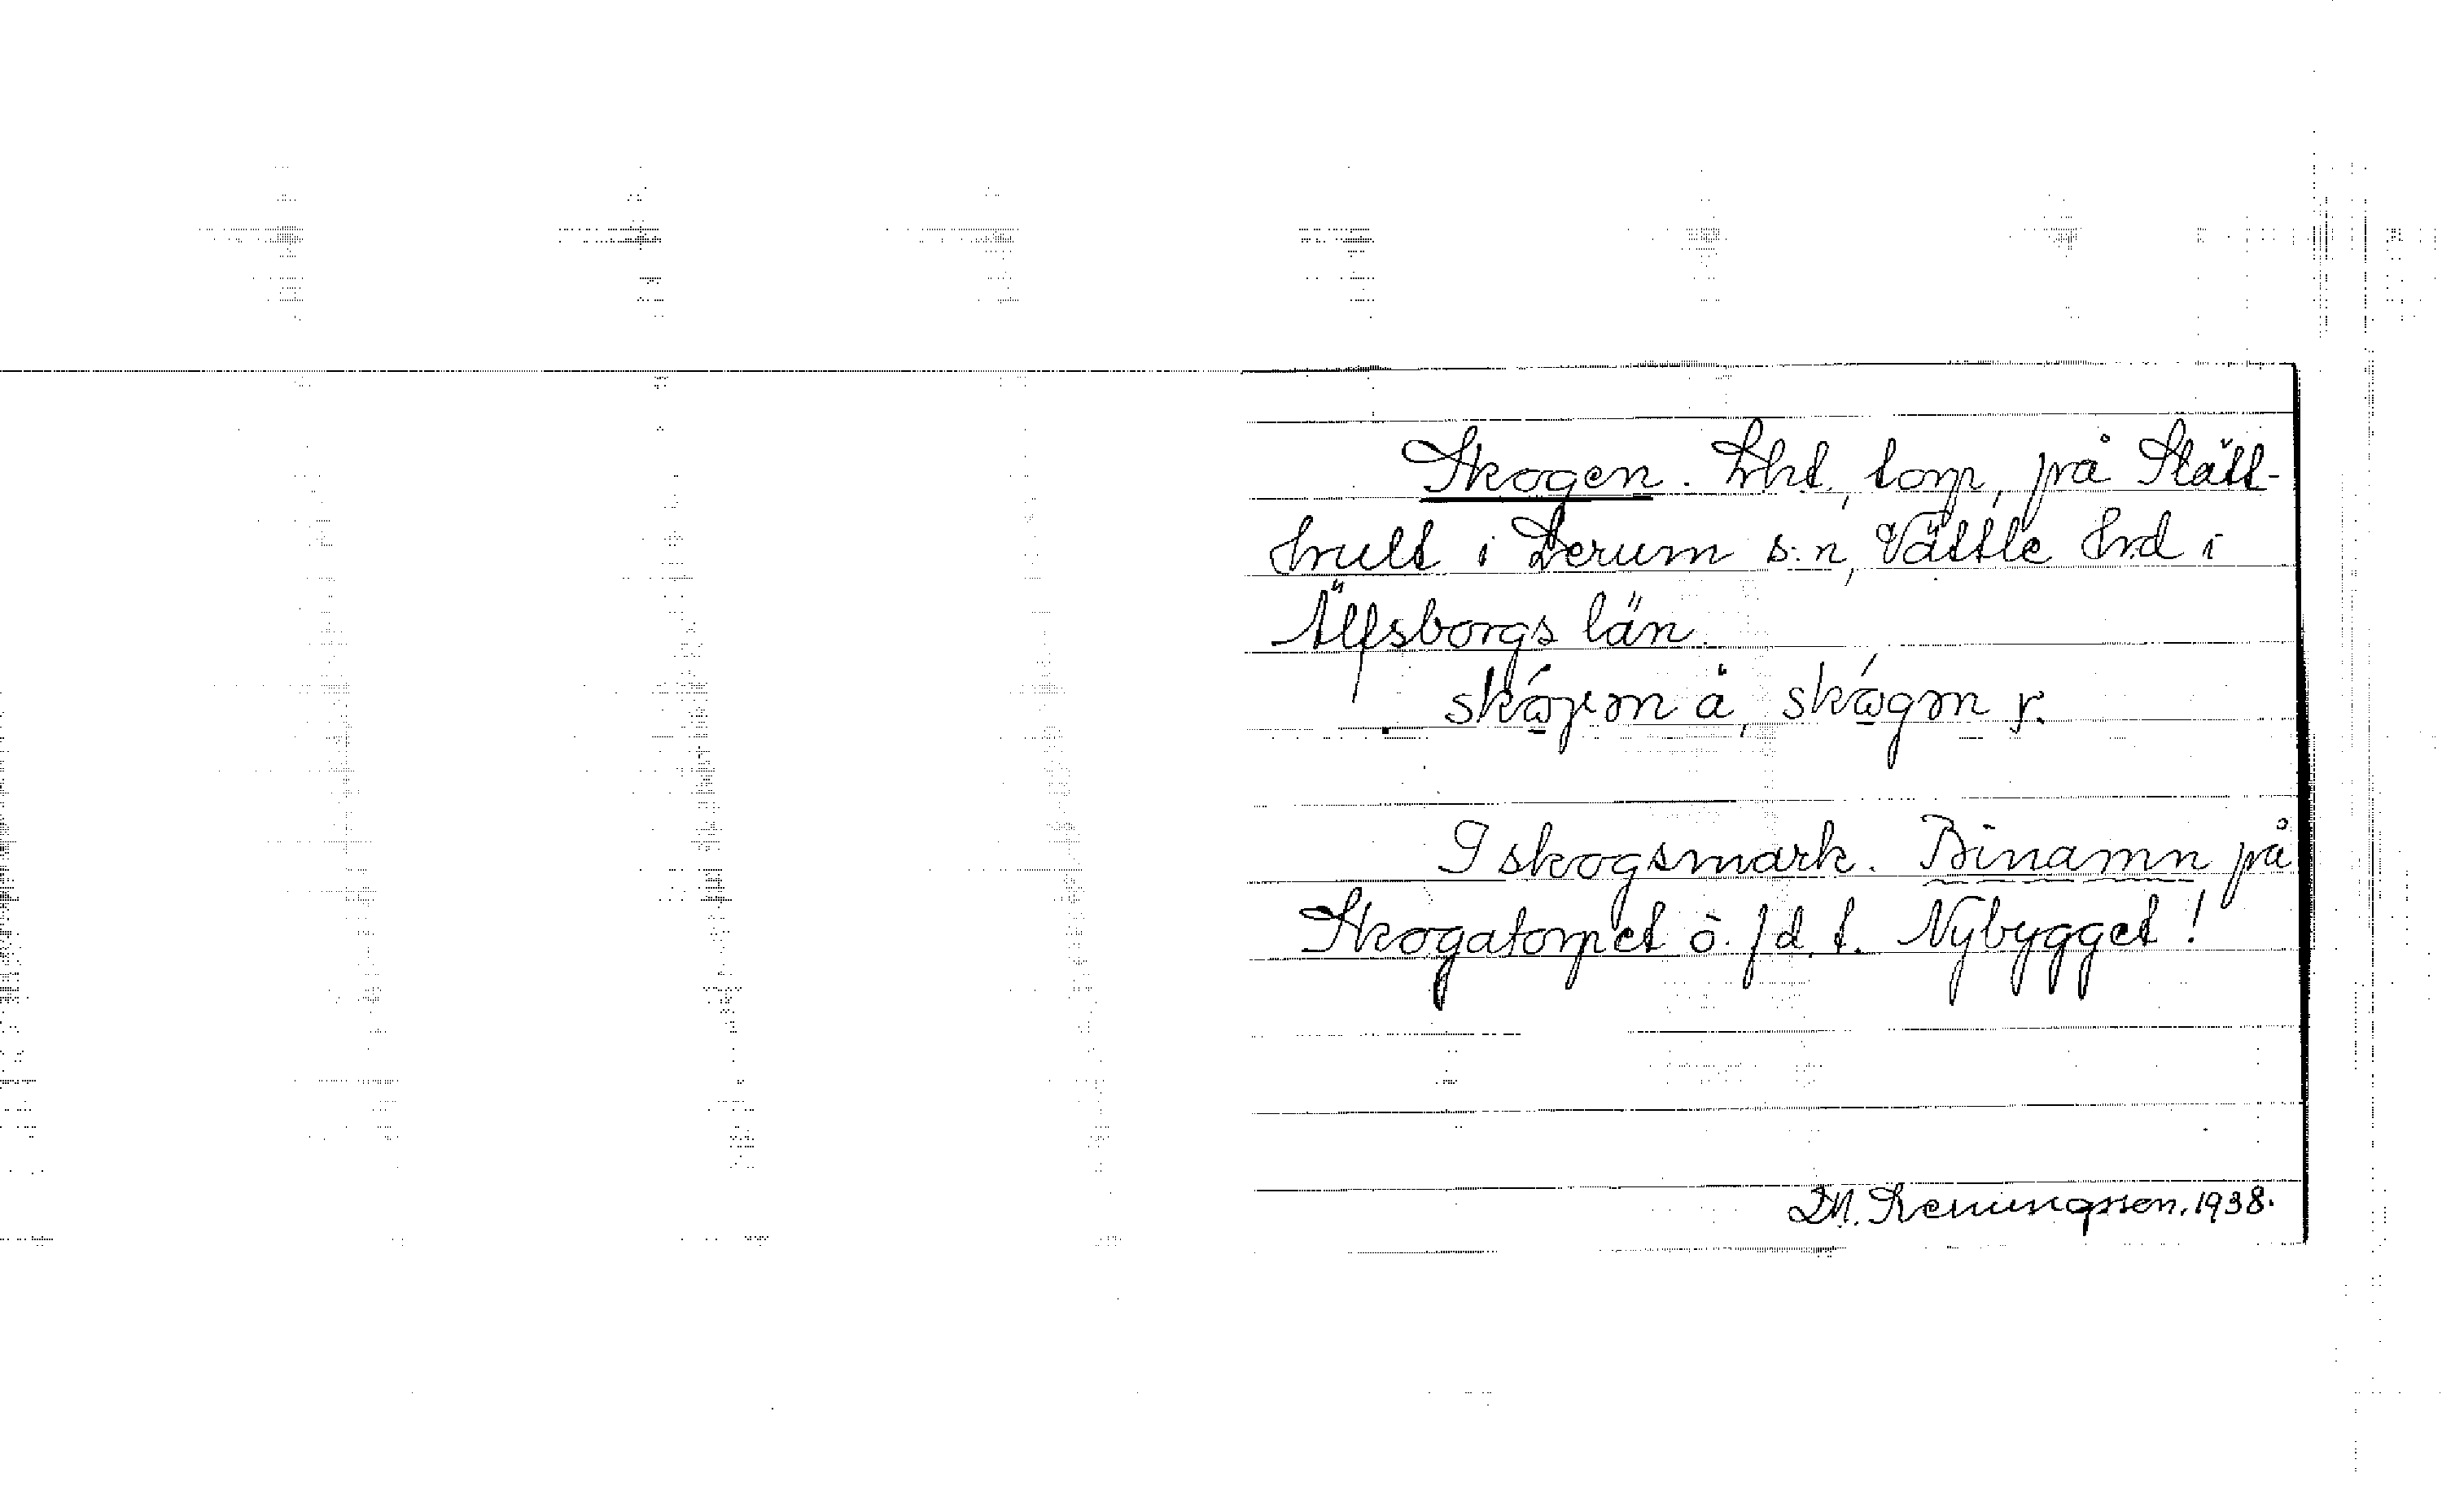 Skogen. Lht, torp, på Slätt-
hult i Lerum s:n, Vättle hrd i
Älfsborgs län.
skógən å, skógən y.
I skogsmark. Binamn på
Skogatorpet o. f d t. Nybygget!
D.N. Henningsson. 1938.